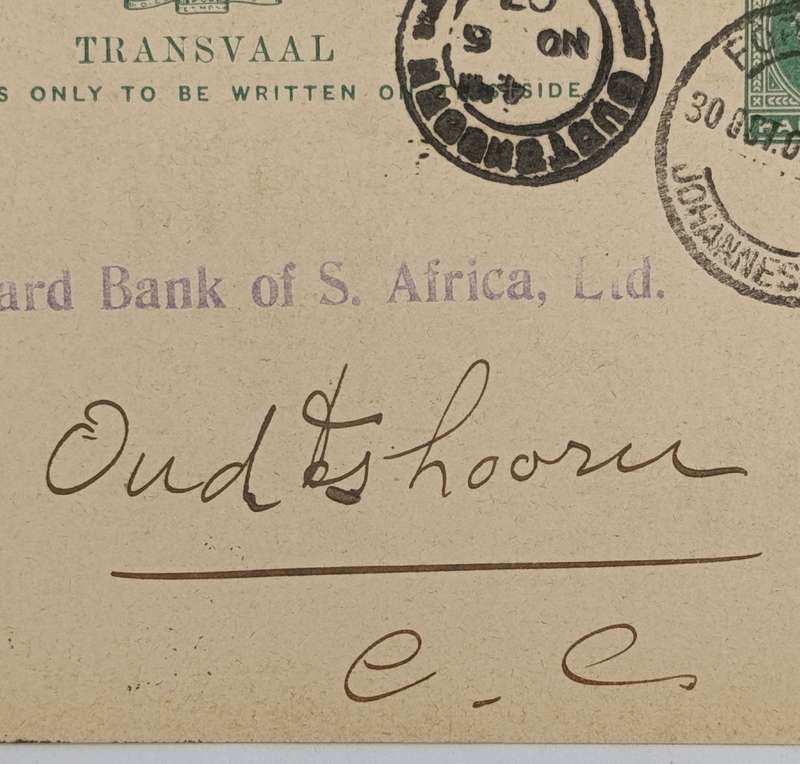 TRANSVAAL
S ONLY TO BE WRITTEN ON SIDE.
OUDTSHOORN
NO 5
30 OCT.0
JOHANNES
ard Bank of S. Africa, Ltd.
Oudtshoorn
C. C